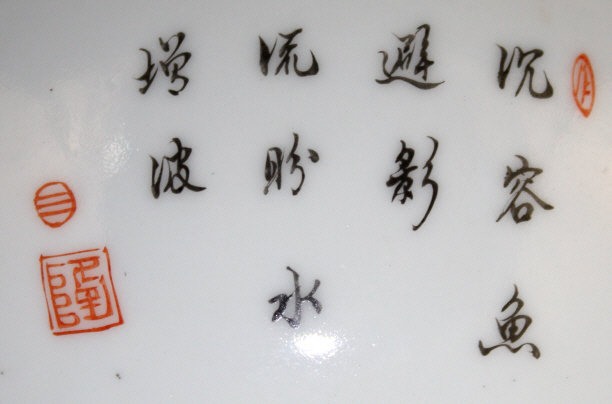 沉容魚
避影
流盼水
增波